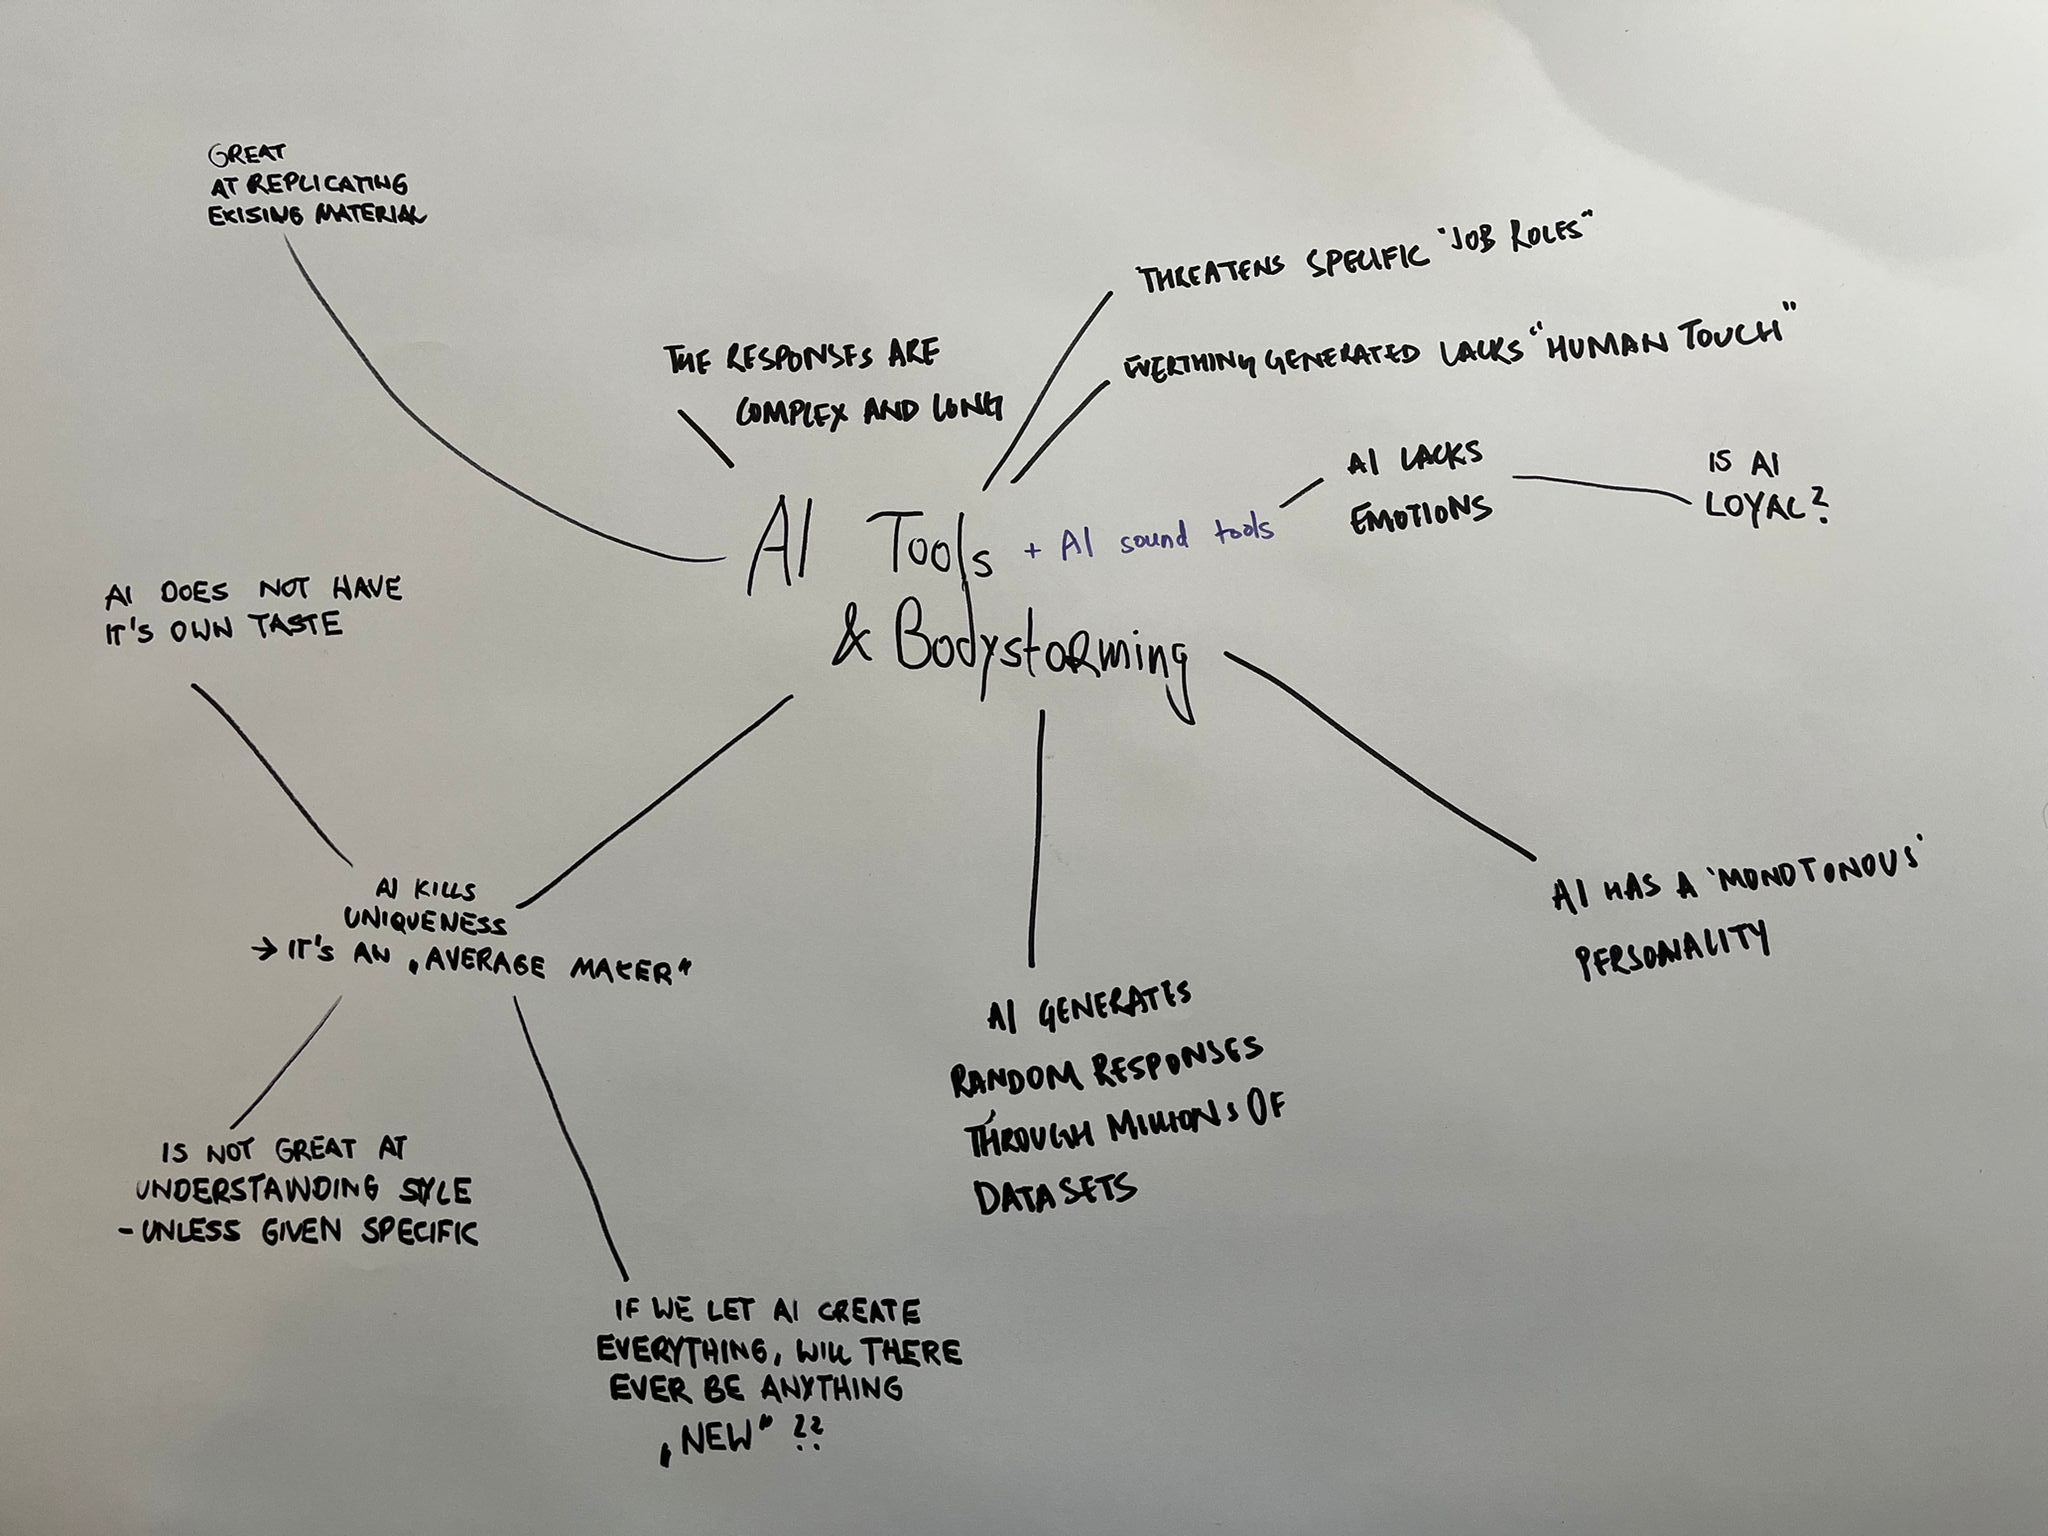 GREAT
AT REPLICATING
EXISING MATERIAL
THREATENS SPECIFIC "JOB ROLES"
THE RESPONSES ARE
COMPLEX AND LONG
EVERTHING GENERATED LACKS "HUMAN TOUCH"
AI LACKS
EMOTIONS
IS AI
LOYAL?
AI Tools + AI sound tools
& Bodystorming
AI DOES NOT HAVE
IT'S OWN TASTE
AI KILLS
UNIQUENESS
→ IT'S AN „AVERAGE MAKER"
AI HAS A 'MONOTONOUS'
PERSONALITY
AI GENERATES
RANDOM RESPONSES
THROUGH MILLIONS OF
DATASETS
IS NOT GREAT AT
UNDERSTANDING STYLE
- UNLESS GIVEN SPECIFIC
IF WE LET AI CREATE
EVERYTHING, WILL THERE
EVER BE ANYTHING
„NEW" ??